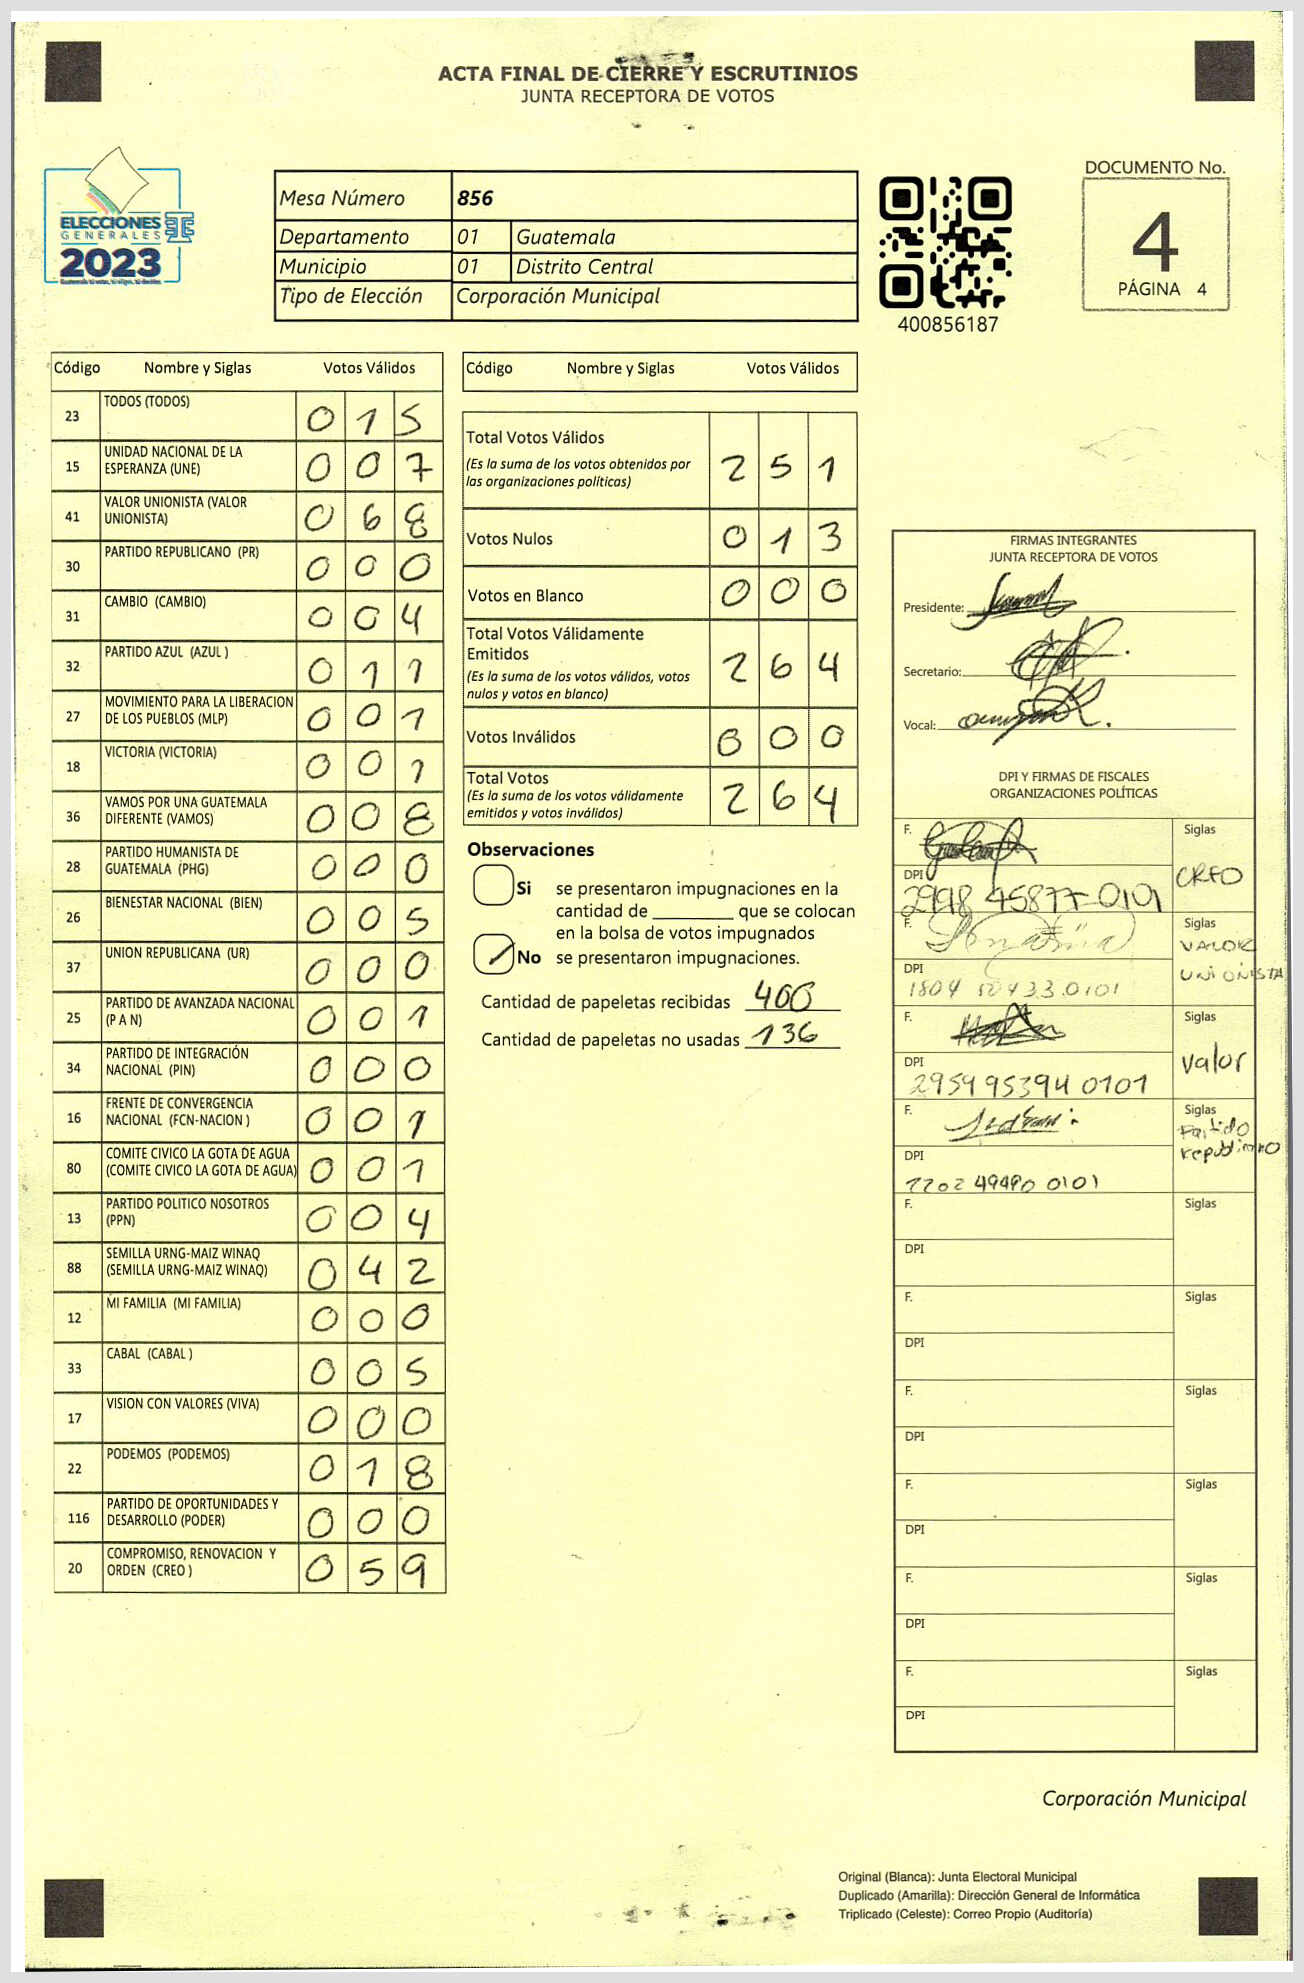 ACTA FINAL DE CIERRE Y ESCRUTINIOS
JUNTA RECEPTORA DE VOTOS
ELECCIONES
GENERALES
2023
Mesa Número 856
Departamento 01 Guatemala
Municipio 01 Distrito Central
Tipo de Elección Corporación Municipal
400856187
DOCUMENTO No.
4
PÁGINA 4
Código Nombre y Siglas Votos Válidos
23 TODOS (TODOS) 0 1 5
15 UNIDAD NACIONAL DE LA ESPERANZA (UNE) 0 0 7
41 VALOR UNIONISTA (VALOR UNIONISTA) 0 6 8
30 PARTIDO REPUBLICANO (PR) 0 0 0
31 CAMBIO (CAMBIO) 0 0 4
32 PARTIDO AZUL (AZUL ) 0 1 1
27 MOVIMIENTO PARA LA LIBERACION DE LOS PUEBLOS (MLP) 0 0 1
18 VICTORIA (VICTORIA) 0 0 1
36 VAMOS POR UNA GUATEMALA DIFERENTE (VAMOS) 0 0 8
28 PARTIDO HUMANISTA DE GUATEMALA (PHG) 0 0 0
26 BIENESTAR NACIONAL (BIEN) 0 0 5
37 UNION REPUBLICANA (UR) 0 0 0
25 PARTIDO DE AVANZADA NACIONAL (P A N) 0 0 1
34 PARTIDO DE INTEGRACIÓN NACIONAL (PIN) 0 0 0
16 FRENTE DE CONVERGENCIA NACIONAL (FCN-NACION ) 0 0 1
80 COMITE CIVICO LA GOTA DE AGUA (COMITE CIVICO LA GOTA DE AGUA) 0 0 1
13 PARTIDO POLITICO NOSOTROS (PPN) 0 0 4
88 SEMILLA URNG-MAIZ WINAQ (SEMILLA URNG-MAIZ WINAQ) 0 4 2
12 MI FAMILIA (MI FAMILIA) 0 0 0
33 CABAL (CABAL ) 0 0 5
17 VISION CON VALORES (VIVA) 0 0 0
22 PODEMOS (PODEMOS) 0 1 8
116 PARTIDO DE OPORTUNIDADES Y DESARROLLO (PODER) 0 0 0
20 COMPROMISO, RENOVACION Y ORDEN (CREO ) 0 5 9
Código Nombre y Siglas Votos Válidos
Total Votos Válidos 2 5 1
(Es la suma de los votos obtenidos por
las organizaciones políticas)
Votos Nulos 0 1 3
Votos en Blanco 0 0 0
Total Votos Válidamente
Emitidos 2 6 4
(Es la suma de los votos válidos, votos
nulos y votos en blanco)
Votos Inválidos 0 0 0
Total Votos 2 6 4
(Es la suma de los votos válidamente
emitidos y votos inválidos)
Observaciones
Si se presentaron impugnaciones en la
cantidad de ________ que se colocan
en la bolsa de votos impugnados
No se presentaron impugnaciones.
Cantidad de papeletas recibidas 400
Cantidad de papeletas no usadas 136
FIRMAS INTEGRANTES
JUNTA RECEPTORA DE VOTOS
Presidente:
Secretario:
Vocal:
DPI Y FIRMAS DE FISCALES
ORGANIZACIONES POLÍTICAS
F. Siglas
CREO
DPI
2998 45877-0101
F. Siglas
VALOR
UNIONISTA
DPI
F. Siglas
Valor
DPI
2959 95394 0101
F. Siglas
Partido
republicano
DPI
F. Siglas
DPI
F. Siglas
DPI
F. Siglas
DPI
F. Siglas
DPI
F. Siglas
DPI
F. Siglas
DPI
Corporación Municipal
Original (Blanca): Junta Electoral Municipal
Duplicado (Amarilla): Dirección General de Informática
Triplicado (Celeste): Correo Propio (Auditoría)